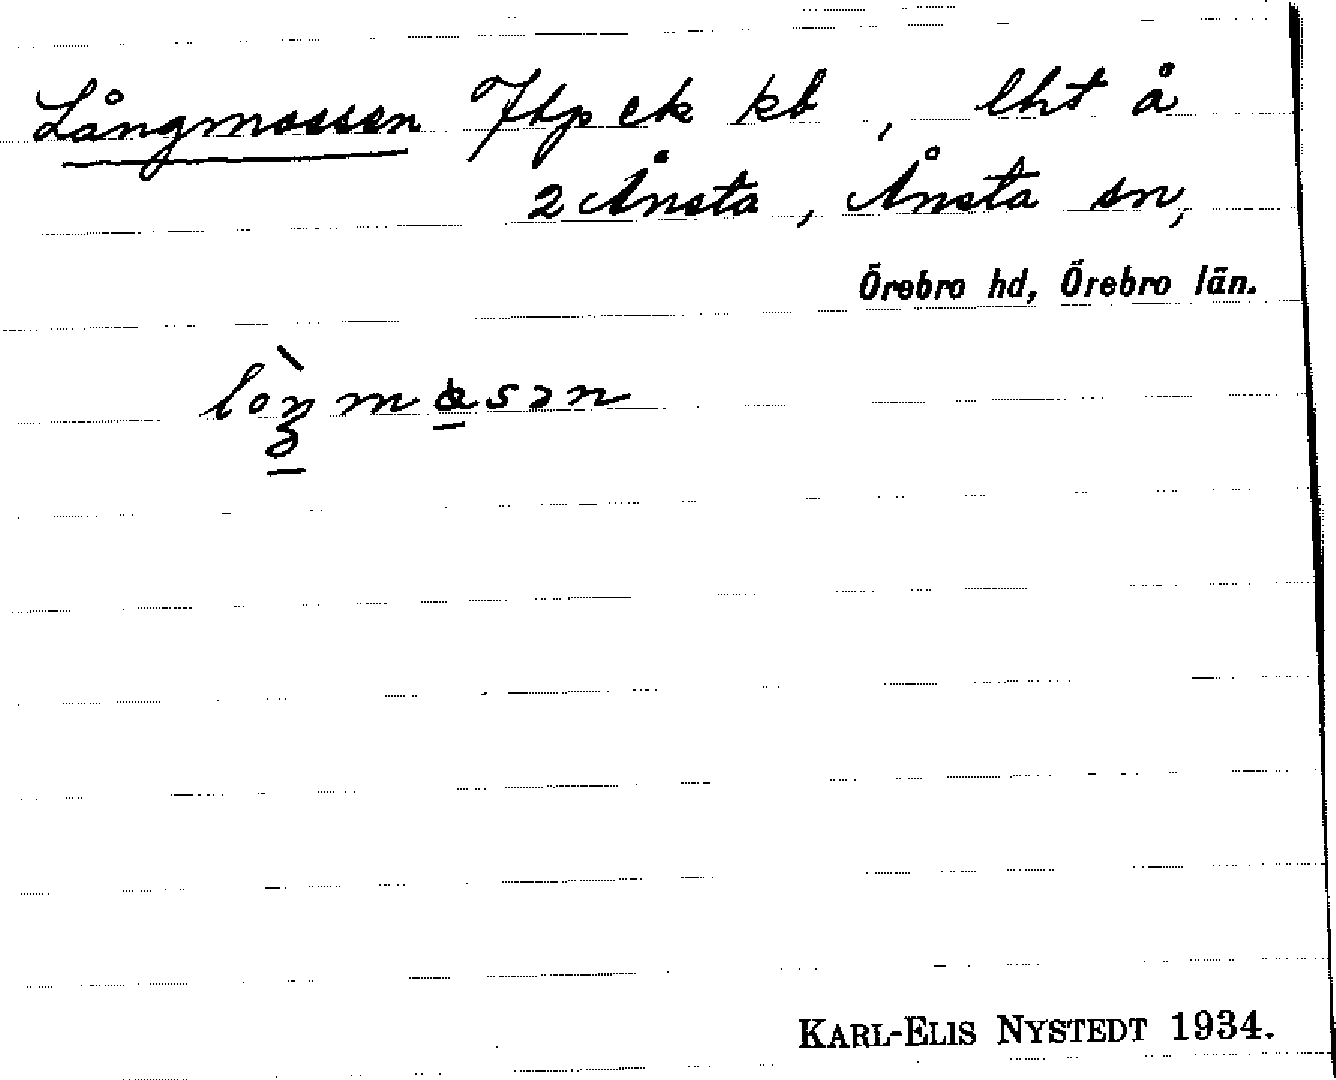 Långmossen Jtp ek kb, lht å
2 Ånsta, Ånsta sn,
Örebro hd, Örebro län.
lòŋmɷsən
KARL-ELIS NYSTEDT 1934.